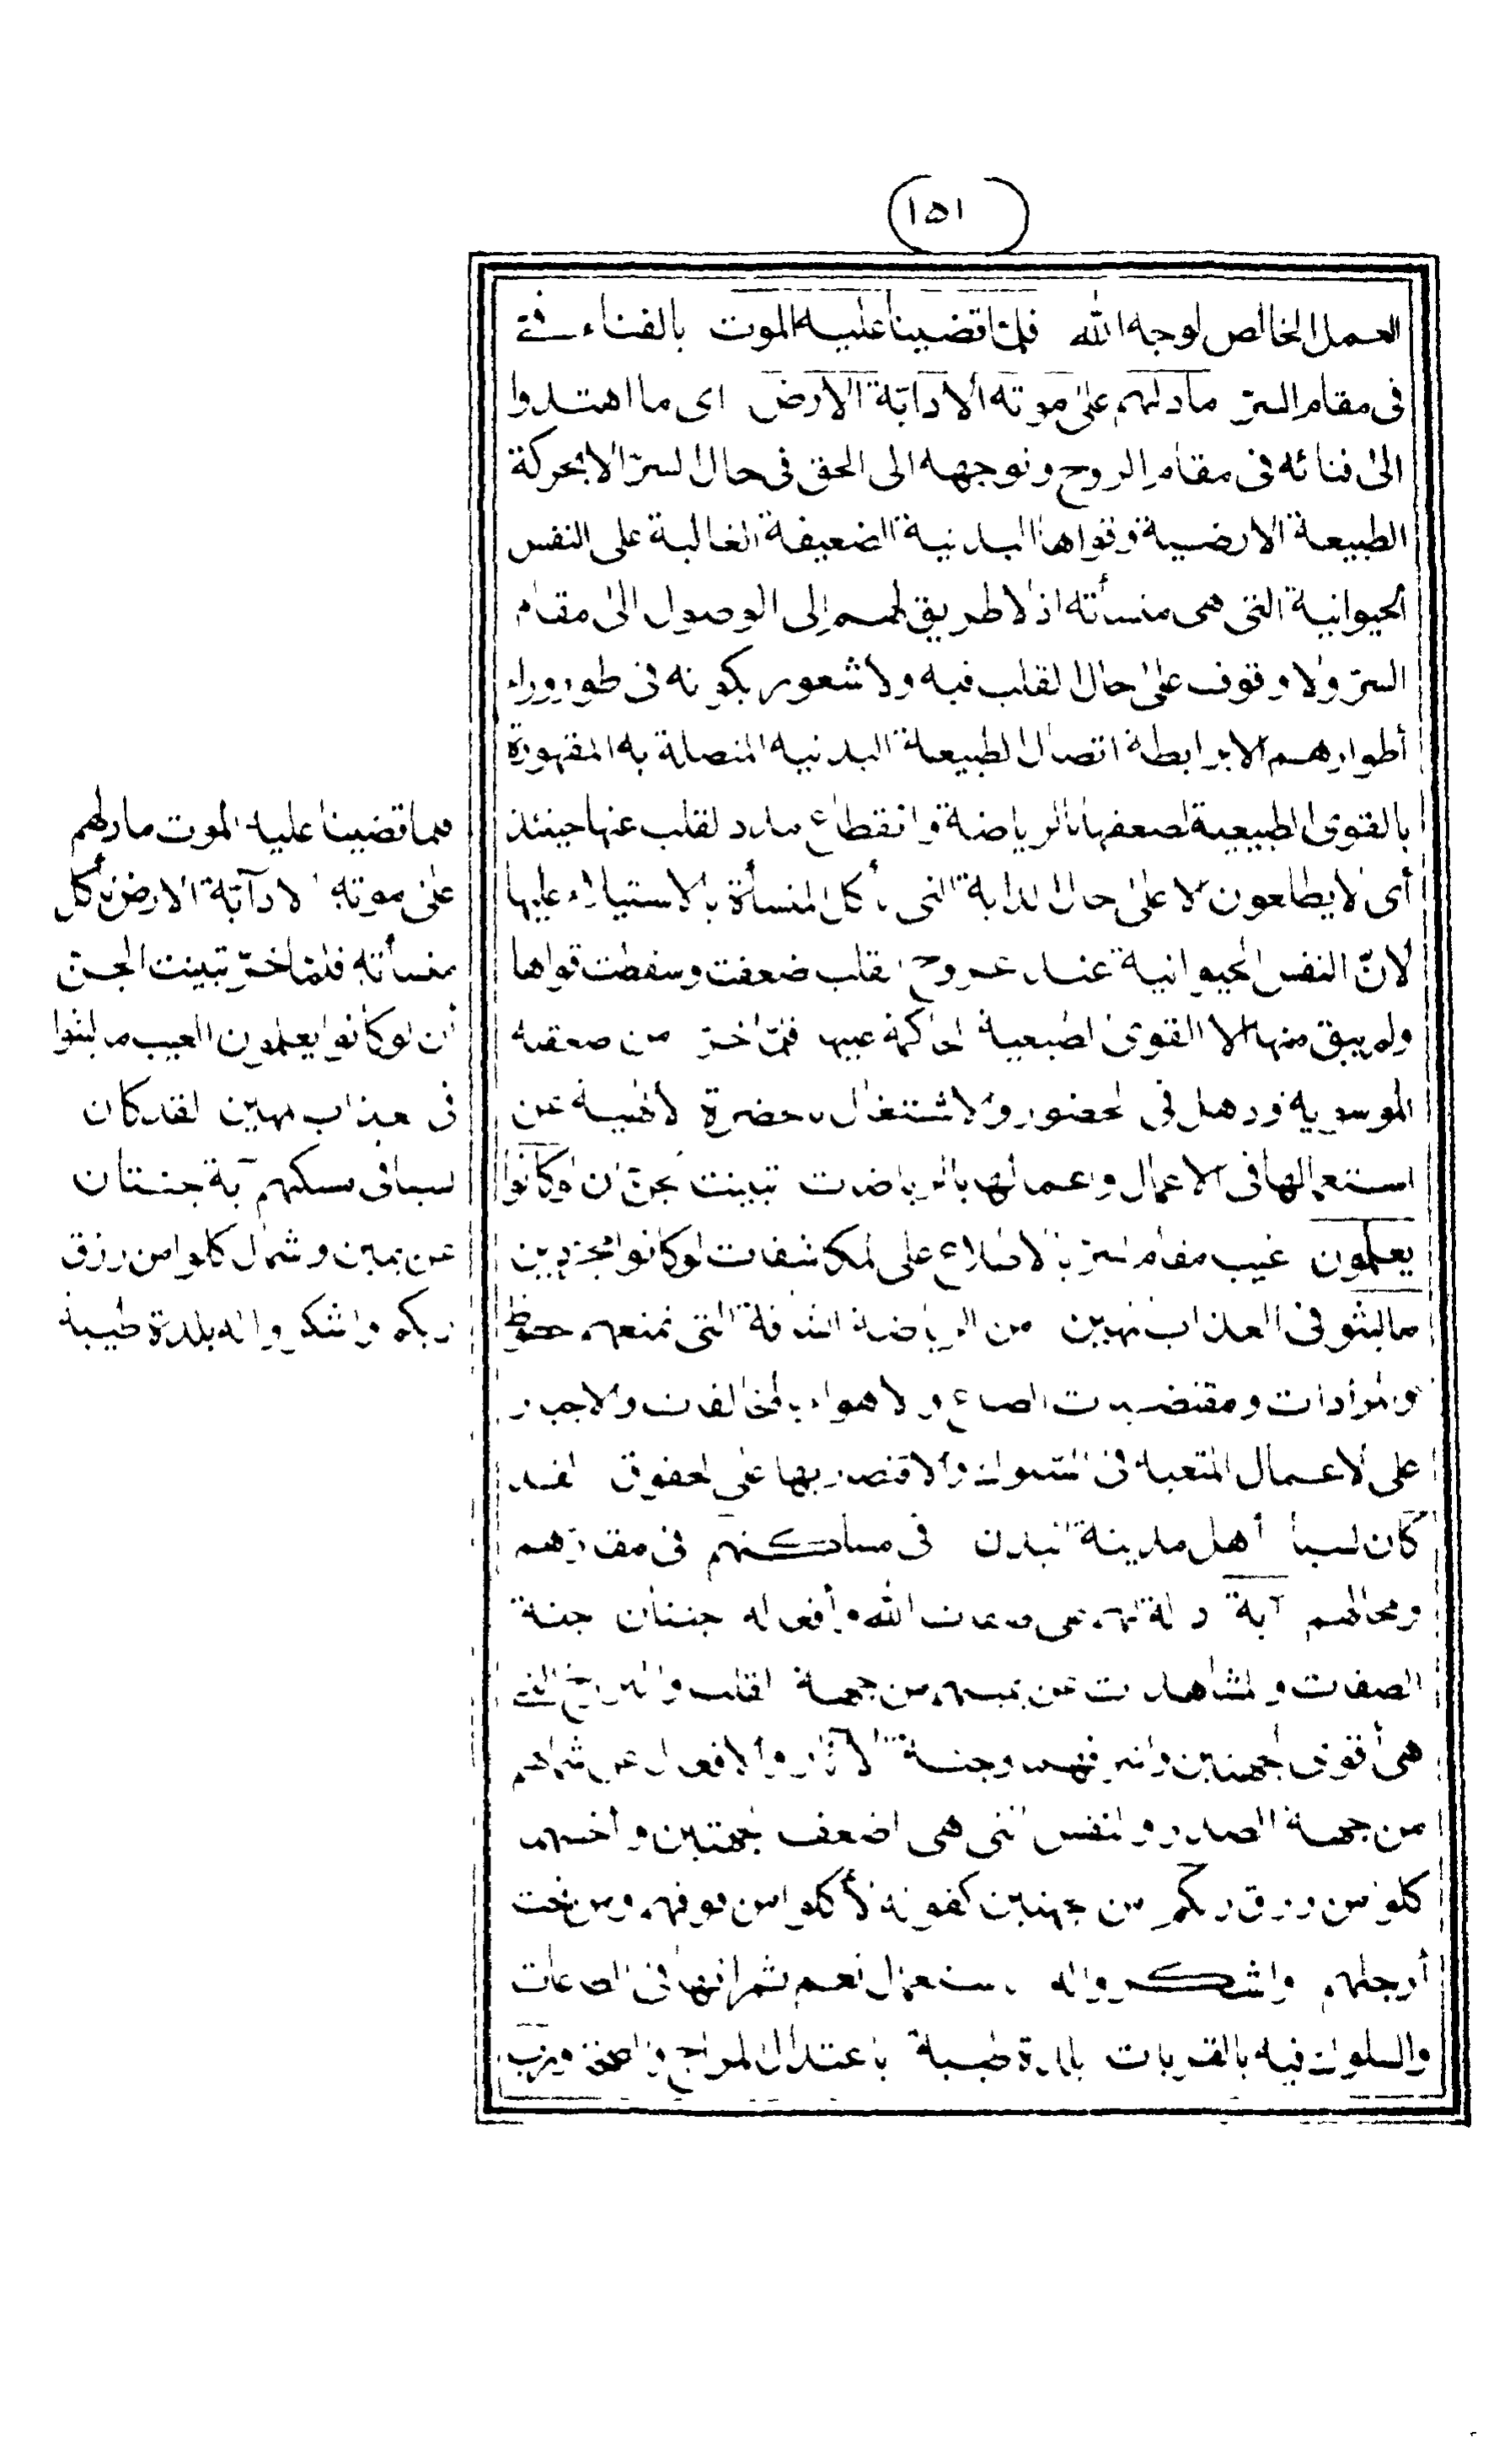 (١٥١)
العمل الخالص لوجه الله فلما قضينا عليه الموت بالفناء فى
فى مقام السرّ ما دلهم على موته الا دابّة الارض اى ما اهتدوا
الى فنائه فى مقام الروح وتوجهه الى الحق فى حال السرّ الا بحركة
الطبيعة الارضية وقواها البدنية الضعيفة الغالبة على النفس
الحيوانية التى هى منسأته اذ لا طريق لهم إلى الوصول الى مقام
السرّ ولا وقوف على حال القلب فيه ولا شعور بكونه فى طور وراء
أطوارهم الا برابطة اتصال الطبيعة البدنية المتصلة به المقهورة
بالقوى الطبيعية لضعفها بالرياضة وانقطاع مدد القلب عنها حينئذ
أى لا يطلعون الا على حال الدابة التى تأكل المنسأة بالاستيلاء عليها
لانّ النفس الحيوانية عند عروج القلب ضعفت وسقطت قواها
ولم يبق منها الا القوى الطبيعية الحاكمة عليها فلما خرّ من صعقته
الموسوية وذهل فى الحضور والاشتغال بالحضرة الالهية عن
استعمالها فى الاعمال واعمالها بالرياضات تبينت الجن ان لو كانوا
يعلمون غيب مقام السرّ بالاطلاع على المكاشفات لو كانوا مجردين
ما لبثوا فى العذاب المهين من الرياضة الشاقة التى تمنعهم الحظوظ
والمرادات ومقتضيات الطباع والاهواء بالمخالفات والاجبار
على الاعمال المتعبة فى السلوك والاقتصار بها على الحقوق لقد
كان لسبأ أهل مدينة البدن فى مساكنهم فى مقارّهم
ومحالهم آية دالة لهم على صفات الله وأفعاله جنتان جنة
الصفات والمشاهدات عن يمينهم من جهة القلب والروح التى
هى أقوى الجهتين وأشرفهما وجنة الآثار والافعال عن شمالهم
من جهة الصدر والنفس التى هى اضعف الجهتين وأخسهما
كلوا من رزق ربكم من الجهتين كقوله لأكلوا من فوقهم ومن تحت
أرجلهم واشكروا له باستعمال نعم ثمراتها فى الطاعات
والسلوك فيه بالقربات بلدة طيبة باعتدال المزاج والصحة ورب
فلما قضينا عليه الموت ما دلهم
على موته الا دآبّة الارض تأكل
منسأته فلما خرّ تبينت الجن
أن لو كانوا يعلمون الغيب ما لبثوا
فى العذاب المهين لقد كان
لسبا فى مسكنهم آية جنتان
عن يمين وشمال كلوا من رزق
ربكم واشكروا له بلدة طيبة